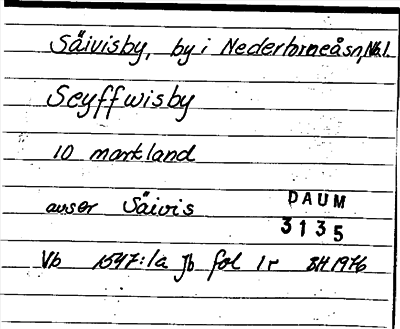 Säivisby, by i Nedertorneåsn, Nb.l.
Seyffwisby
10 markland
avser Säivis
DAUM
3135
Vb 1547:1a Jb fol 1r BH 1976